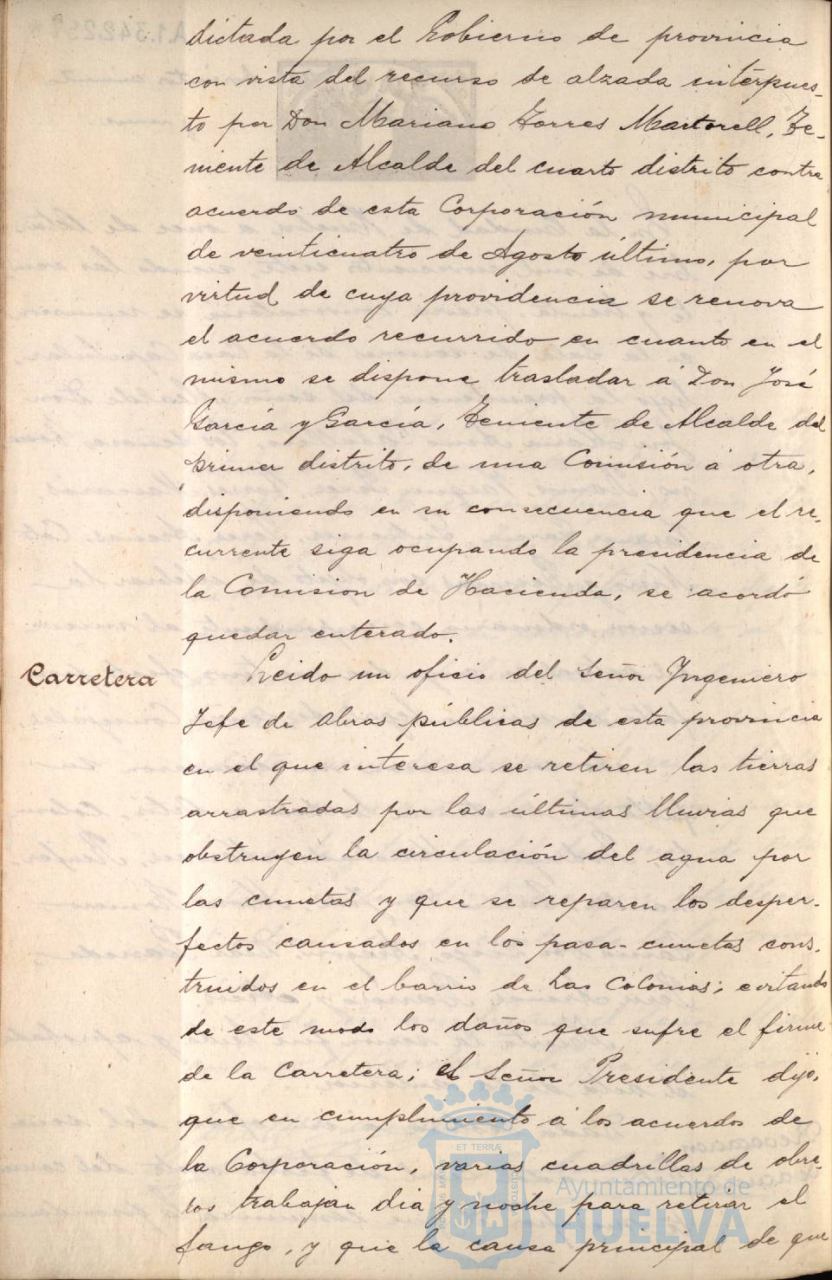 dictada por el Gobierno de provincia
con vista del recurso de alzada interpues-
to por Don Mariano Torres Martorell, Te-
niente de Alcalde del cuarto distrito contra
acuerdo de esta Corporación municipal
de veinticuatro de Agosto último, por
virtud de cuya providencia se renova
el acuerdo recurrido en cuanto en el
mismo se dispone trasladar á Don José
García y García, Teniente de Alcalde del
primer distrito, de una Comisión á otra,
disponiendo en su consecuencia que el re-
currente siga ocupando la presidencia de
la Comision de Hacienda, se acordó
quedar enterado.
Carretera
Leido un oficio del Señor Ingeniero
Jefe de Obras públicas de esta provincia
en el que interesa se retiren las tierras
arrastradas por las últimas lluvias que
obstruyen la circulación del agua por
las cunetas y que se reparen los desper-
fectos causados en los pasa-cunetas cons-
truidos en el barrio de Las Colonias; evitando
de este modo los daños que sufre el firme
de la Carretera; el Señor Presidente dijo,
que en cumplimiento á los acuerdos de
la Corporación, varias cuadrillas de obre-
ros trabajan dia y noche para retirar el
fango, y que la causa principal de que
ET TERRÆ
Ayuntamiento de
HUELVA